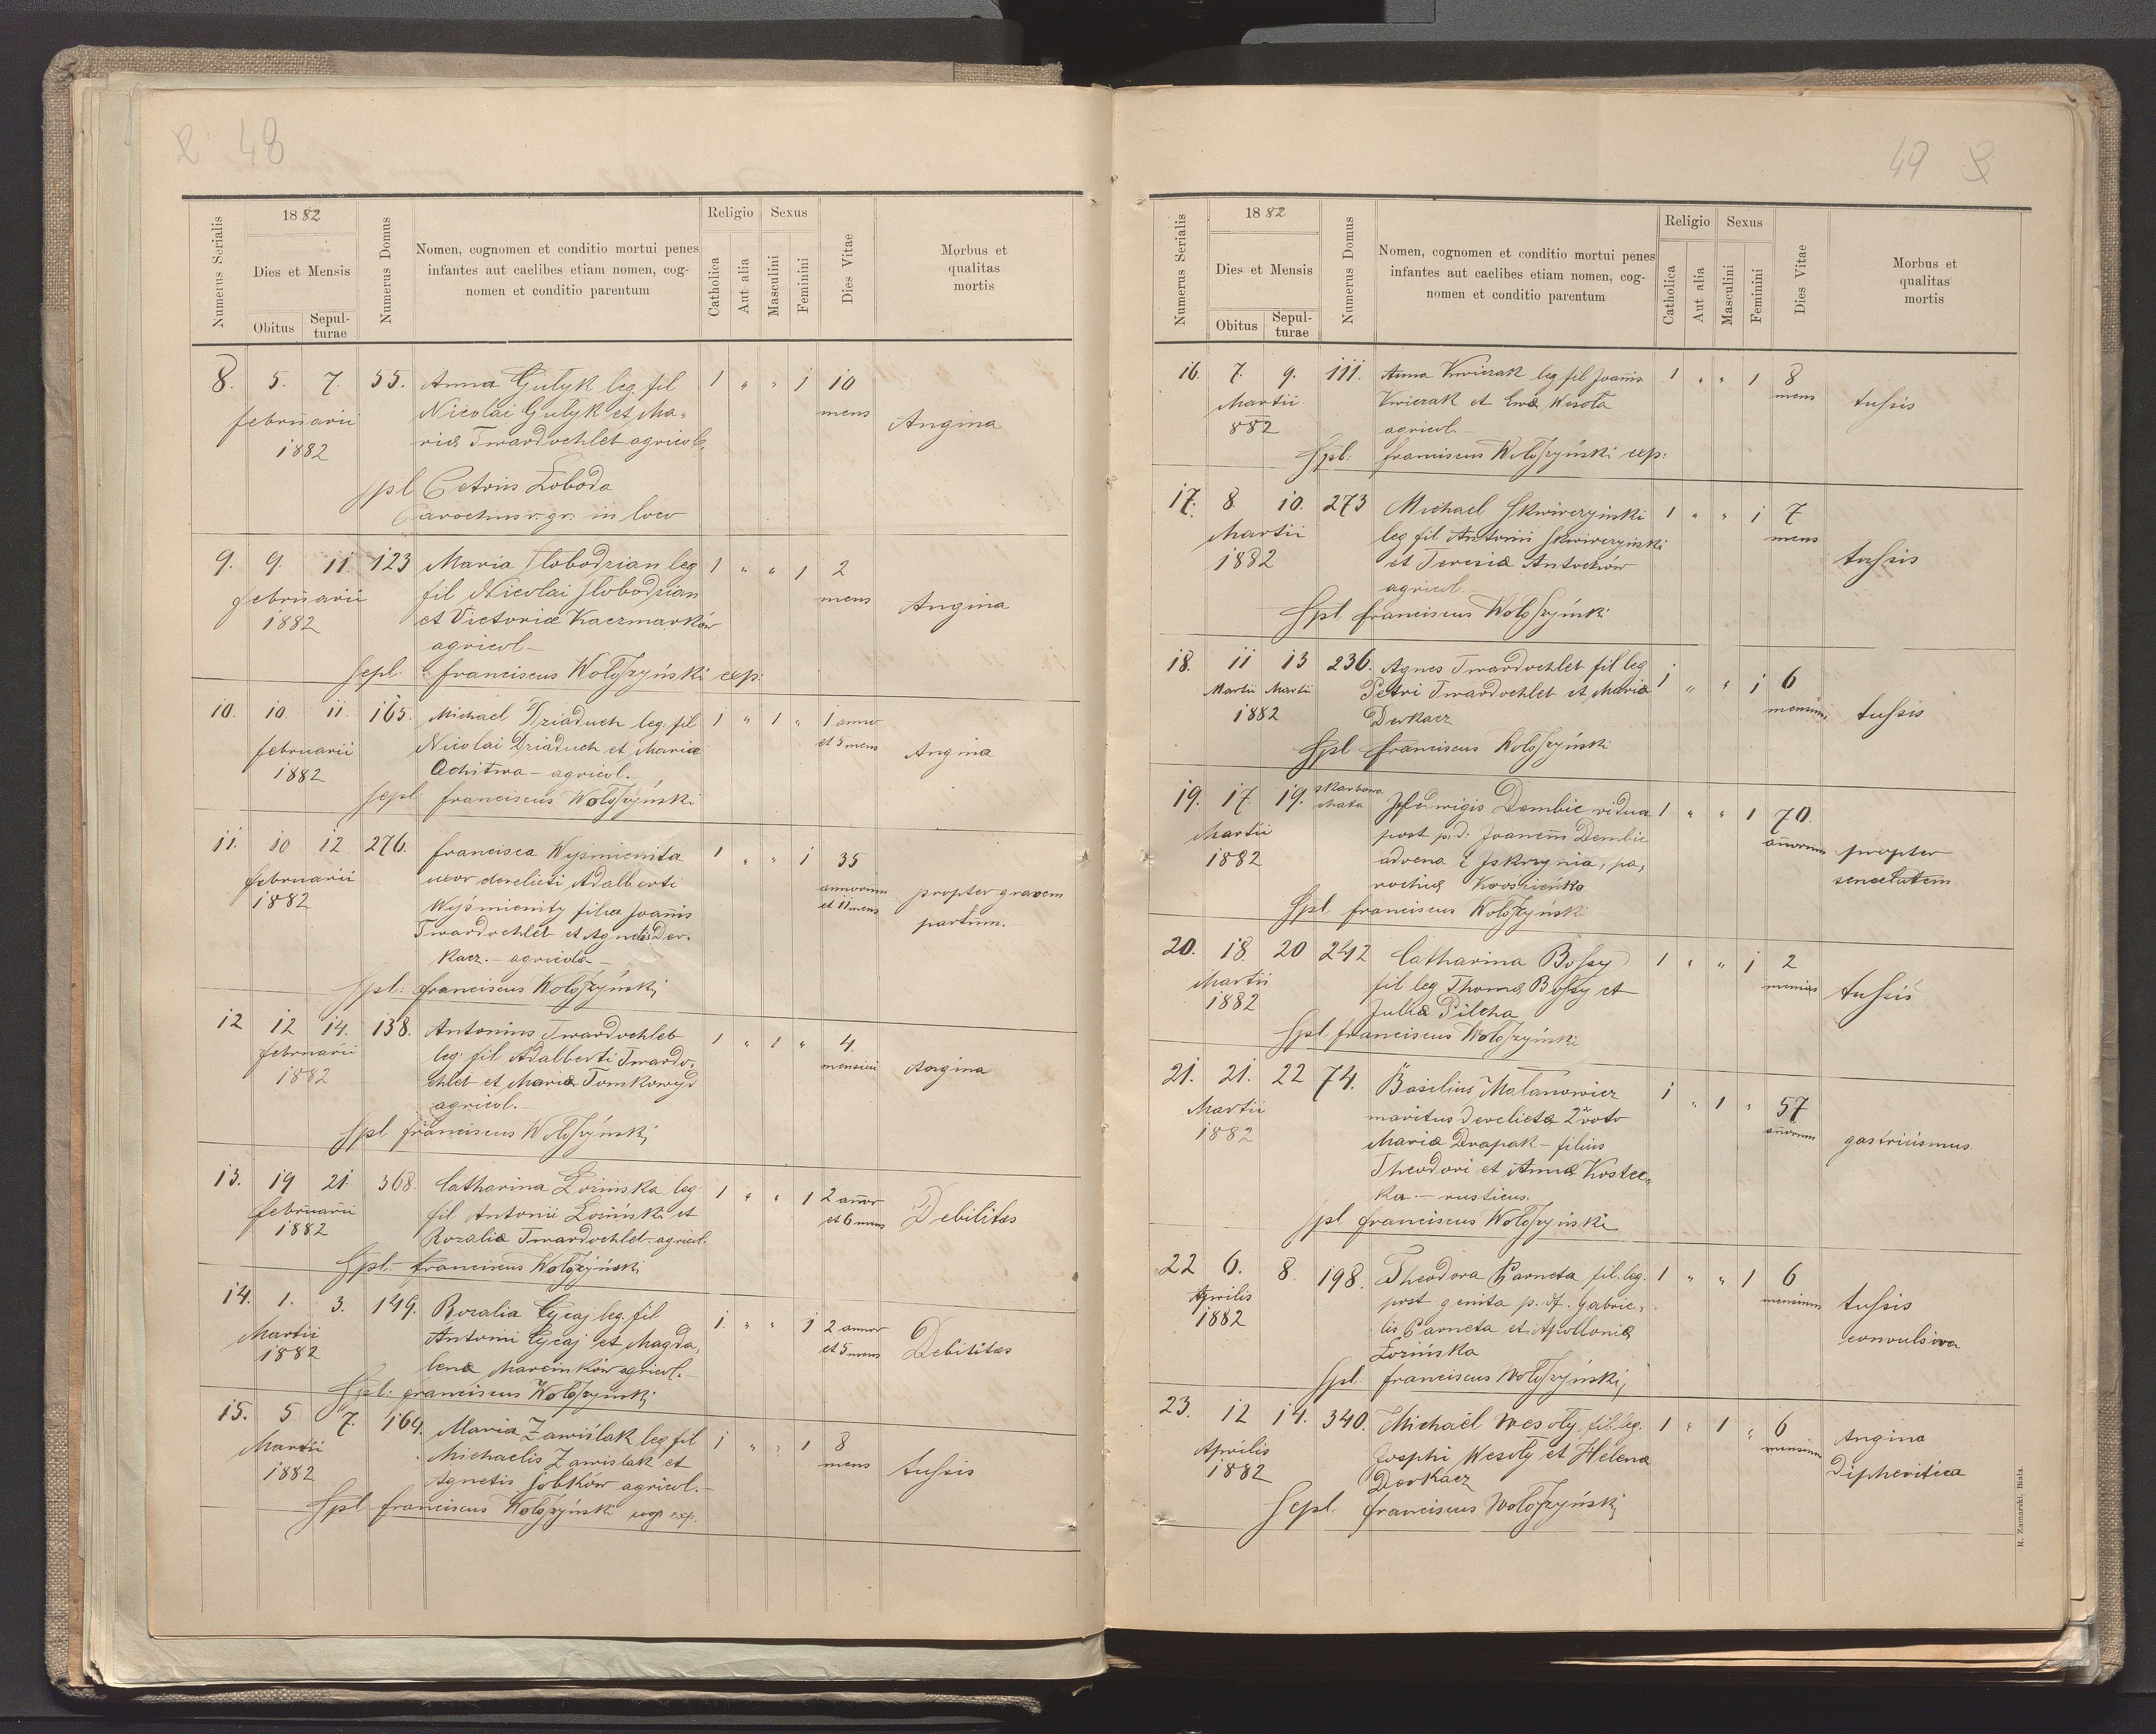 48
Numerus Serialis
1882
Dies et Mensis
Obitus
Sepul-
turae
Numerus Domus
Nomen, cognomen et conditio mortui penes
infantes aut caelibes etiam nomen, cog-
nomen et conditio parentum
Religio
Catholica
Aut alia
Sexus
Masculini
Feminini
Dies Vitae
Morbus et
qualitas
mortis
8. 5. 7. 55. Anna Gułyk leg. fil 1 " " 1 10
februarii Nicolai Gułyk et Ma- mens Angina
1882 riæ Twardochleb agricol.
spl Petrus Łoboda
Parochus r. gr. in loco
9. 9. 11. 123 Maria Slobodzian leg 1 " " 1 2
februarii fil Nicolai Slobodzian mens Angina
1882 et Victoriæ Kaczmarków
agricol-
sepl. franciscus Wołoszyński exp.
10. 10. 11. 165. Michael Dziaduch leg. fil 1 " 1 " 1 anno
februarii Nicolai Dziaduch et Mariæ et 5 mens Angina
1882 Ochitwa - agricol.
sepl. franciscus Wołoszyński
11. 10 12 276. francisca Wyśmienita 1 " " 1 35
februarii uxor derelicti Adalberti annorum propter gravem
1882 Wyśmienity filia Joañis et 11 mens partum.
Twardochleb et Agnetis Der-
kacz. - agricola -
Spl: franciscus Wołoszyński
12 12 14. 138. Antonius Twardochleb 1 " 1 " 4.
februarii leg. fil Adalberti Twardo- mensium Angina
1882 chleb et Mariæ Tomkowyd
agricol.-
Spl franciscus Wołoszyński
13. 19 21. 368. Catharina Łozińska leg. 1 " " 1 2 añor
februarii fil Antonii Łoziński et et 6 mens Debilitas
1882 Rozaliæ Twardochleb - agricol.
Spl.- franciscus Wołoszyński
14. 1. 3. 149. Rozalia Cycaj leg. fil 1. " " 1 2 annor
Martii Antonii Cycaj et Magda- et 5 mens Debilitas
1882 lenæ Marcinków agricol.-
Spl: franciscus Wołoszyński
15. 5. 7. 164. Maria Zawiślak leg fil 1 " " 1 8
Martii Michaelis Zawislak et mens tussis
1882 Agnetis Sobków agricol.-
Spl franciscus Wołoszyński exp.
49
Numerus Serialis
1882
Dies et Mensis
Obitus
Sepul-
turae
Numerus Domus
Nomen, cognomen et conditio mortui penes
infantes aut caelibes etiam nomen, cog-
nomen et conditio parentum
Religio
Catholica
Aut alia
Sexus
Masculini
Feminini
Dies Vitae
Morbus et
qualitas
mortis
16. 7. 9. 111. Anna Kwiczak leg fil Joañis 1 " " 1 8
Martii Kwiczak et Evæ Wesoła mens tussis
882 agricol.-
Spl: franciscus Wołoszyński exp:
17. 8. 10. 273 Michael Skwirczyński 1 " " 1 7
Martii leg fil Antonii Skwirczyński mens
1882 et Teresiæ Antochów tussis
agricol.
Spl franciscus Wołoszyński
18. 11 13 236. Agnes Twardochleb fil leg 1 " " 1 6
Martii Martii Petri Twardochleb et Mariæ mensium tussis
1882 Derkacz
Spl franciscus Wołoszyński
19. 17. 19. skarbowa chata Hedwigis Dembic vidua 1 " " 1 70.
Martii post p.d: Joanem Dembic añorum propter
1882 advena e Iskrzynia, pa- senectutem
rochiæ Krościenko
Spl franciscus Wołoszyński
20. 18. 20 242 Catharina Bossy 1 " " 1 2
Martii fil leg Thomæ Bossy et mensis tussis
1882 Juliæ Pilcha
Spl franciscus Wołoszyński
21. 21. 22 74. Basilius Malanowicz 1 " 1 " 57
Martii maritus derelictæ 2° voto añorum gastricismus
1882 Mariæ Drapak - filius
Theodori et Annæ Kostec-
ka. - rusticus.
Spl franciscus Wołoszyński
22 6. 8. 198. Theodora Parneta fil. leg. 1 " " 1 6
Aprilis post genita p. d. Gabrie- mensium tussis
1882 lis Parneta et Apolloniæ convulsiva
Łozińska
Spl. franciscus Wołoszyński
23. 12 14. 340. Michaël Wesoły fil. leg. 1 " 1 " 6 Angina
Aprilis Josephi Wesoły et Helenæ mensium Dipheritica
1882 Derkacz
Sepl. franciscus Wołoszyński
R. Zamarski, Biała.